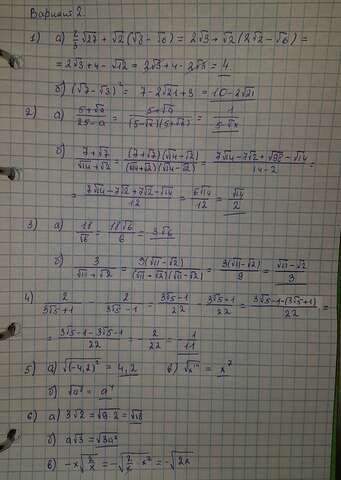 Вариант 2.
1) а) 2/3 √27 + √2 (√8 − √6) = 2√3 + √2 (2√2 − √6) =
= 2√3 + 4 − √12 = 2√3 + 4 − 2√3 = 4
б) (√7 − √3)² = 7 − 2√21 + 3 = 10 − 2√21
2) а) (5+√a)/(25−a) = (5+√a)/((5−√a)(5+√a)) = 1/(5−√a)
б) (7+√7)/(√14+√2) = ((7+√7)(√14−√2))/((√14+√2)(√14−√2)) = (7√14−7√2+√98−√14)/(14−2) =
= (7√14−7√2+7√2−√14)/12 = 6√14/12 = √14/2
3) а) 18/√6 = 18√6/6 = 3√6
б) 3/(√11+√2) = 3(√11−√2)/((√11+√2)(√11−√2)) = 3(√11−√2)/9 = (√11−√2)/3
4) 2/(3√5+1) − 2/(3√5−1) = (3√5−1)/22 − (3√5+1)/22 = (3√5−1−(3√5+1))/22 =
= (3√5−1−3√5−1)/22 = −2/22 = −1/11
5) а) √(−4,2)² = 4,2 в) √x¹⁴ = x⁷
6) а) 3√2 = √9·2 = √18
б) a√3 = √3a²
в) −x√(2/x) = −√(2/x · x²) = −√2x